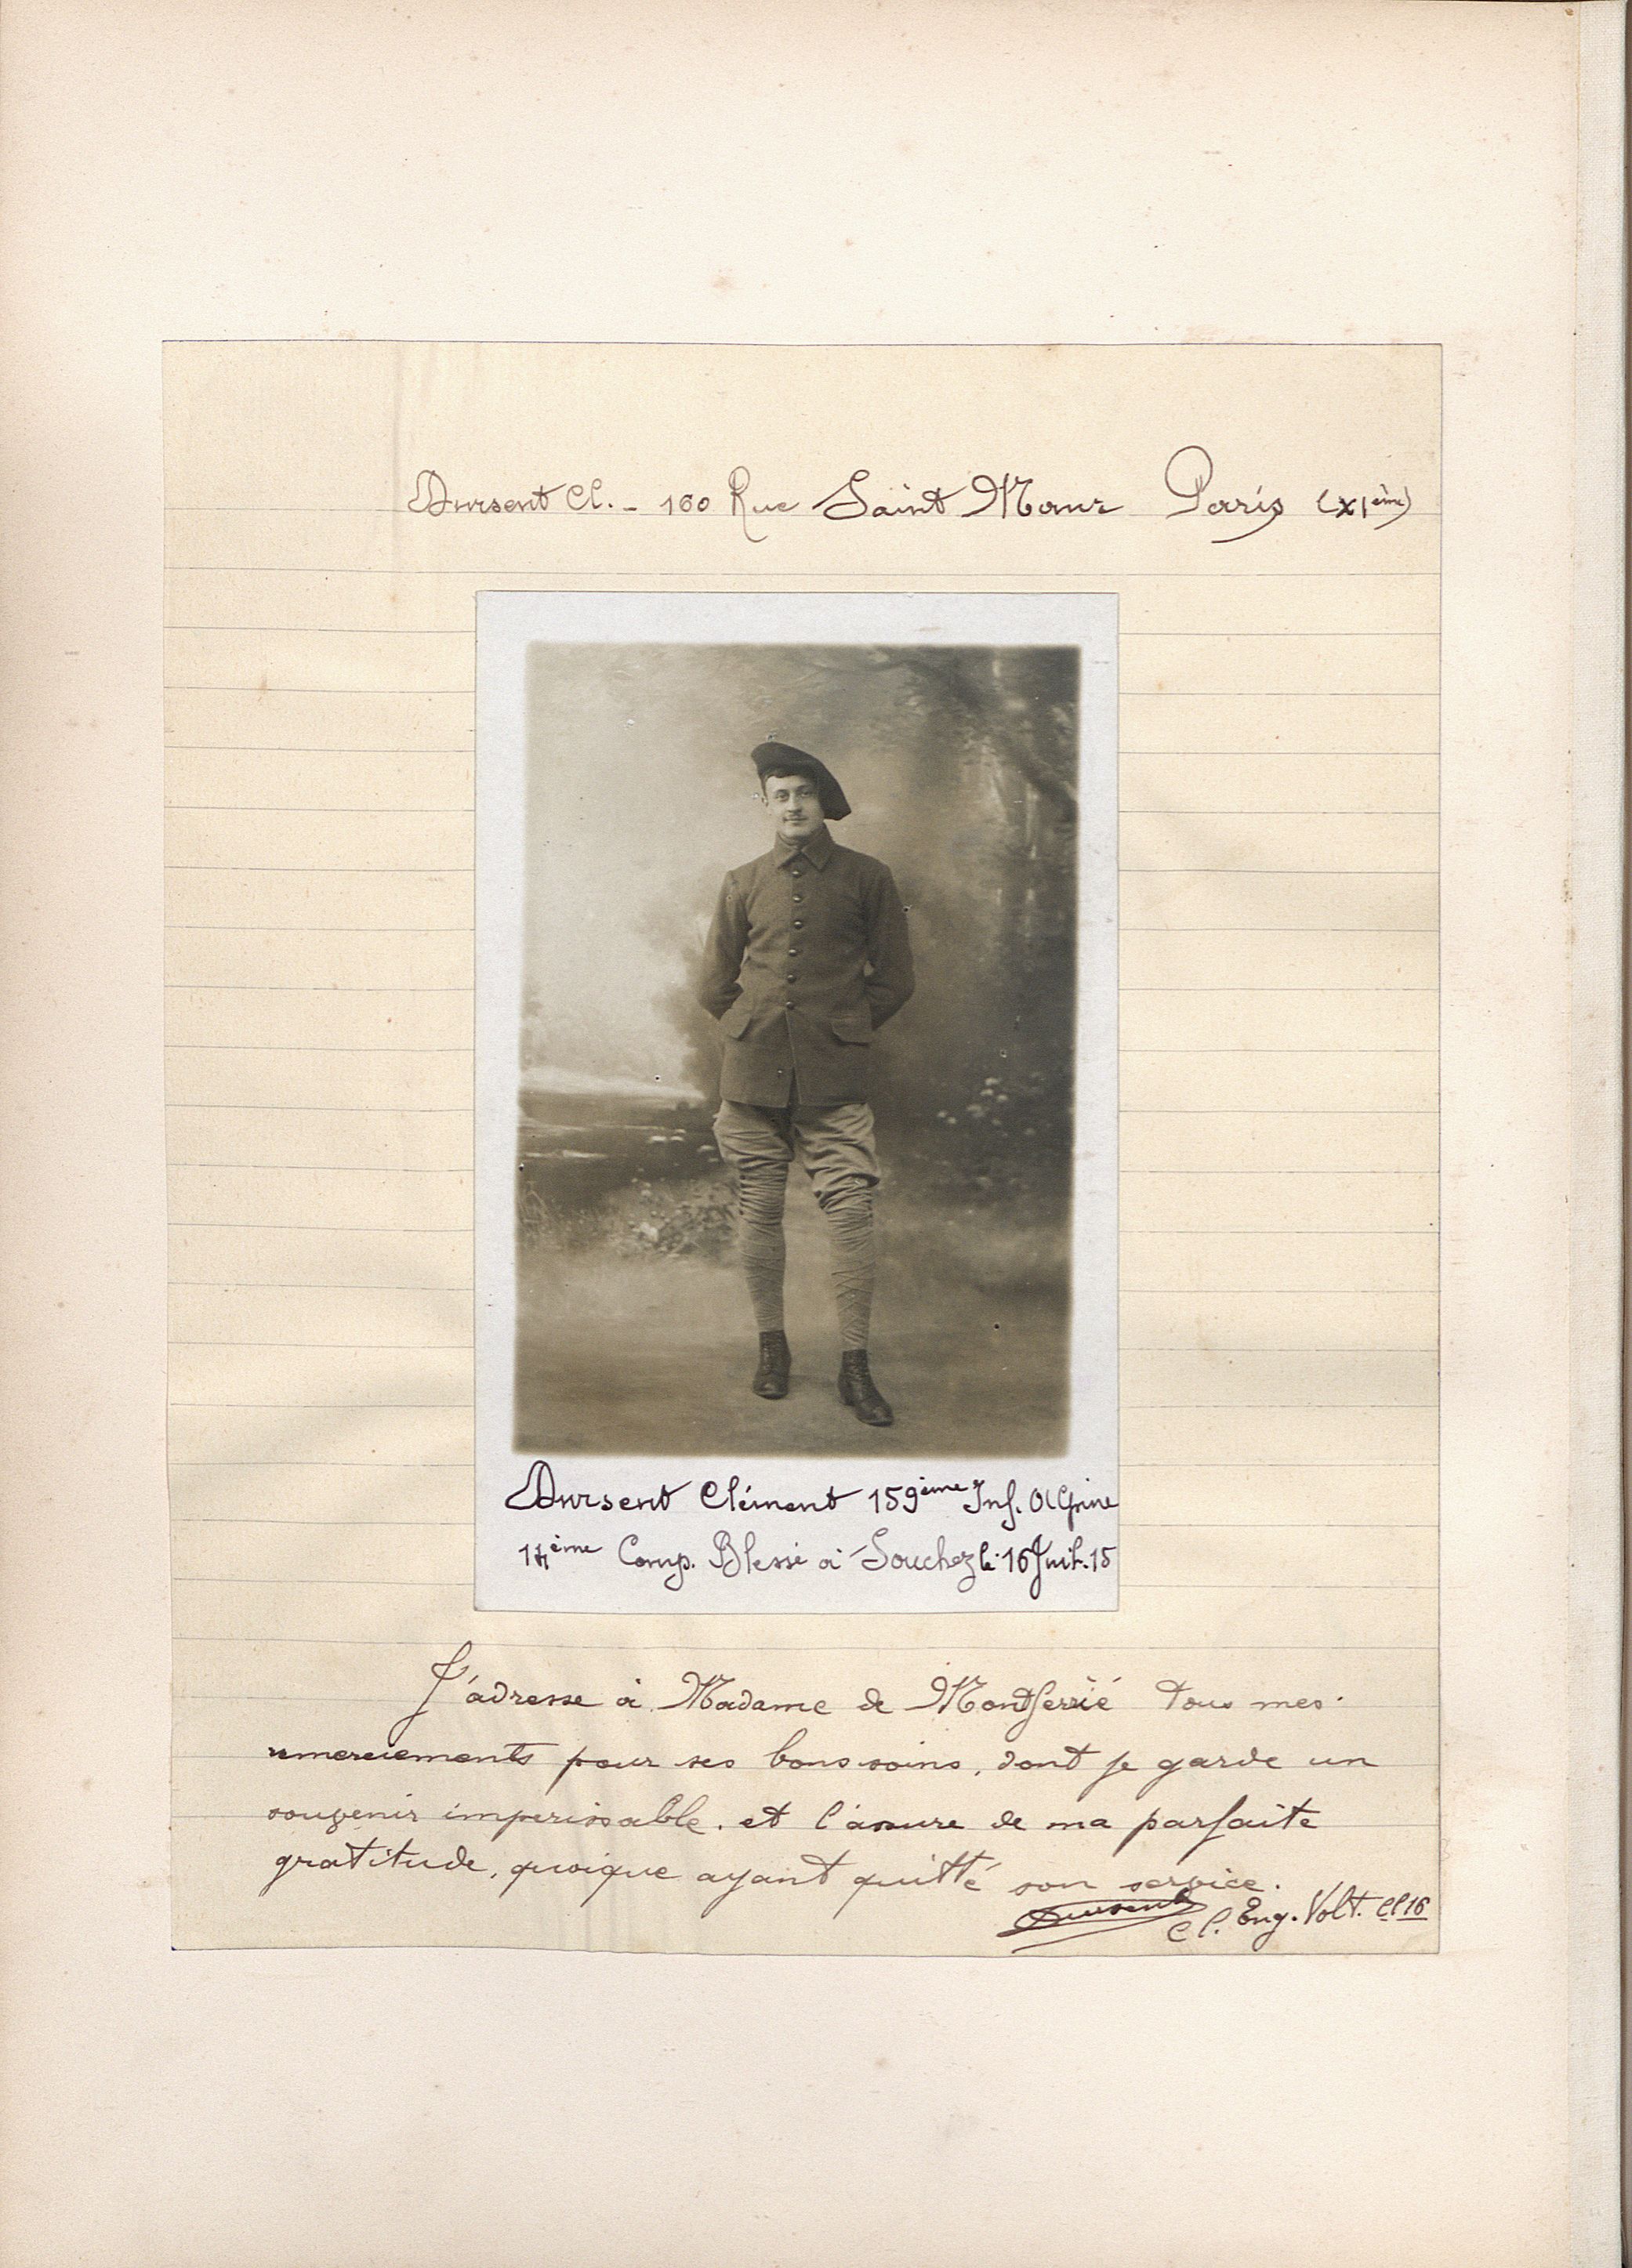 Dursent Cl. - 160 Rue Saint Maur Paris (XIème)
Dursent Clément 159ème Inf. Alpine
Comp. Blessé à Souchez le 16 Juil. 15
J'adresse à Madame de Montferrié tous mes
remerciements pour ses bons soins, dont je garde un
souvenir imperissable. et l'assure de ma parfaite
gratitude, quoique ayant quitté son service.
Dursent
Cl. Eng. Volt. Cl 16